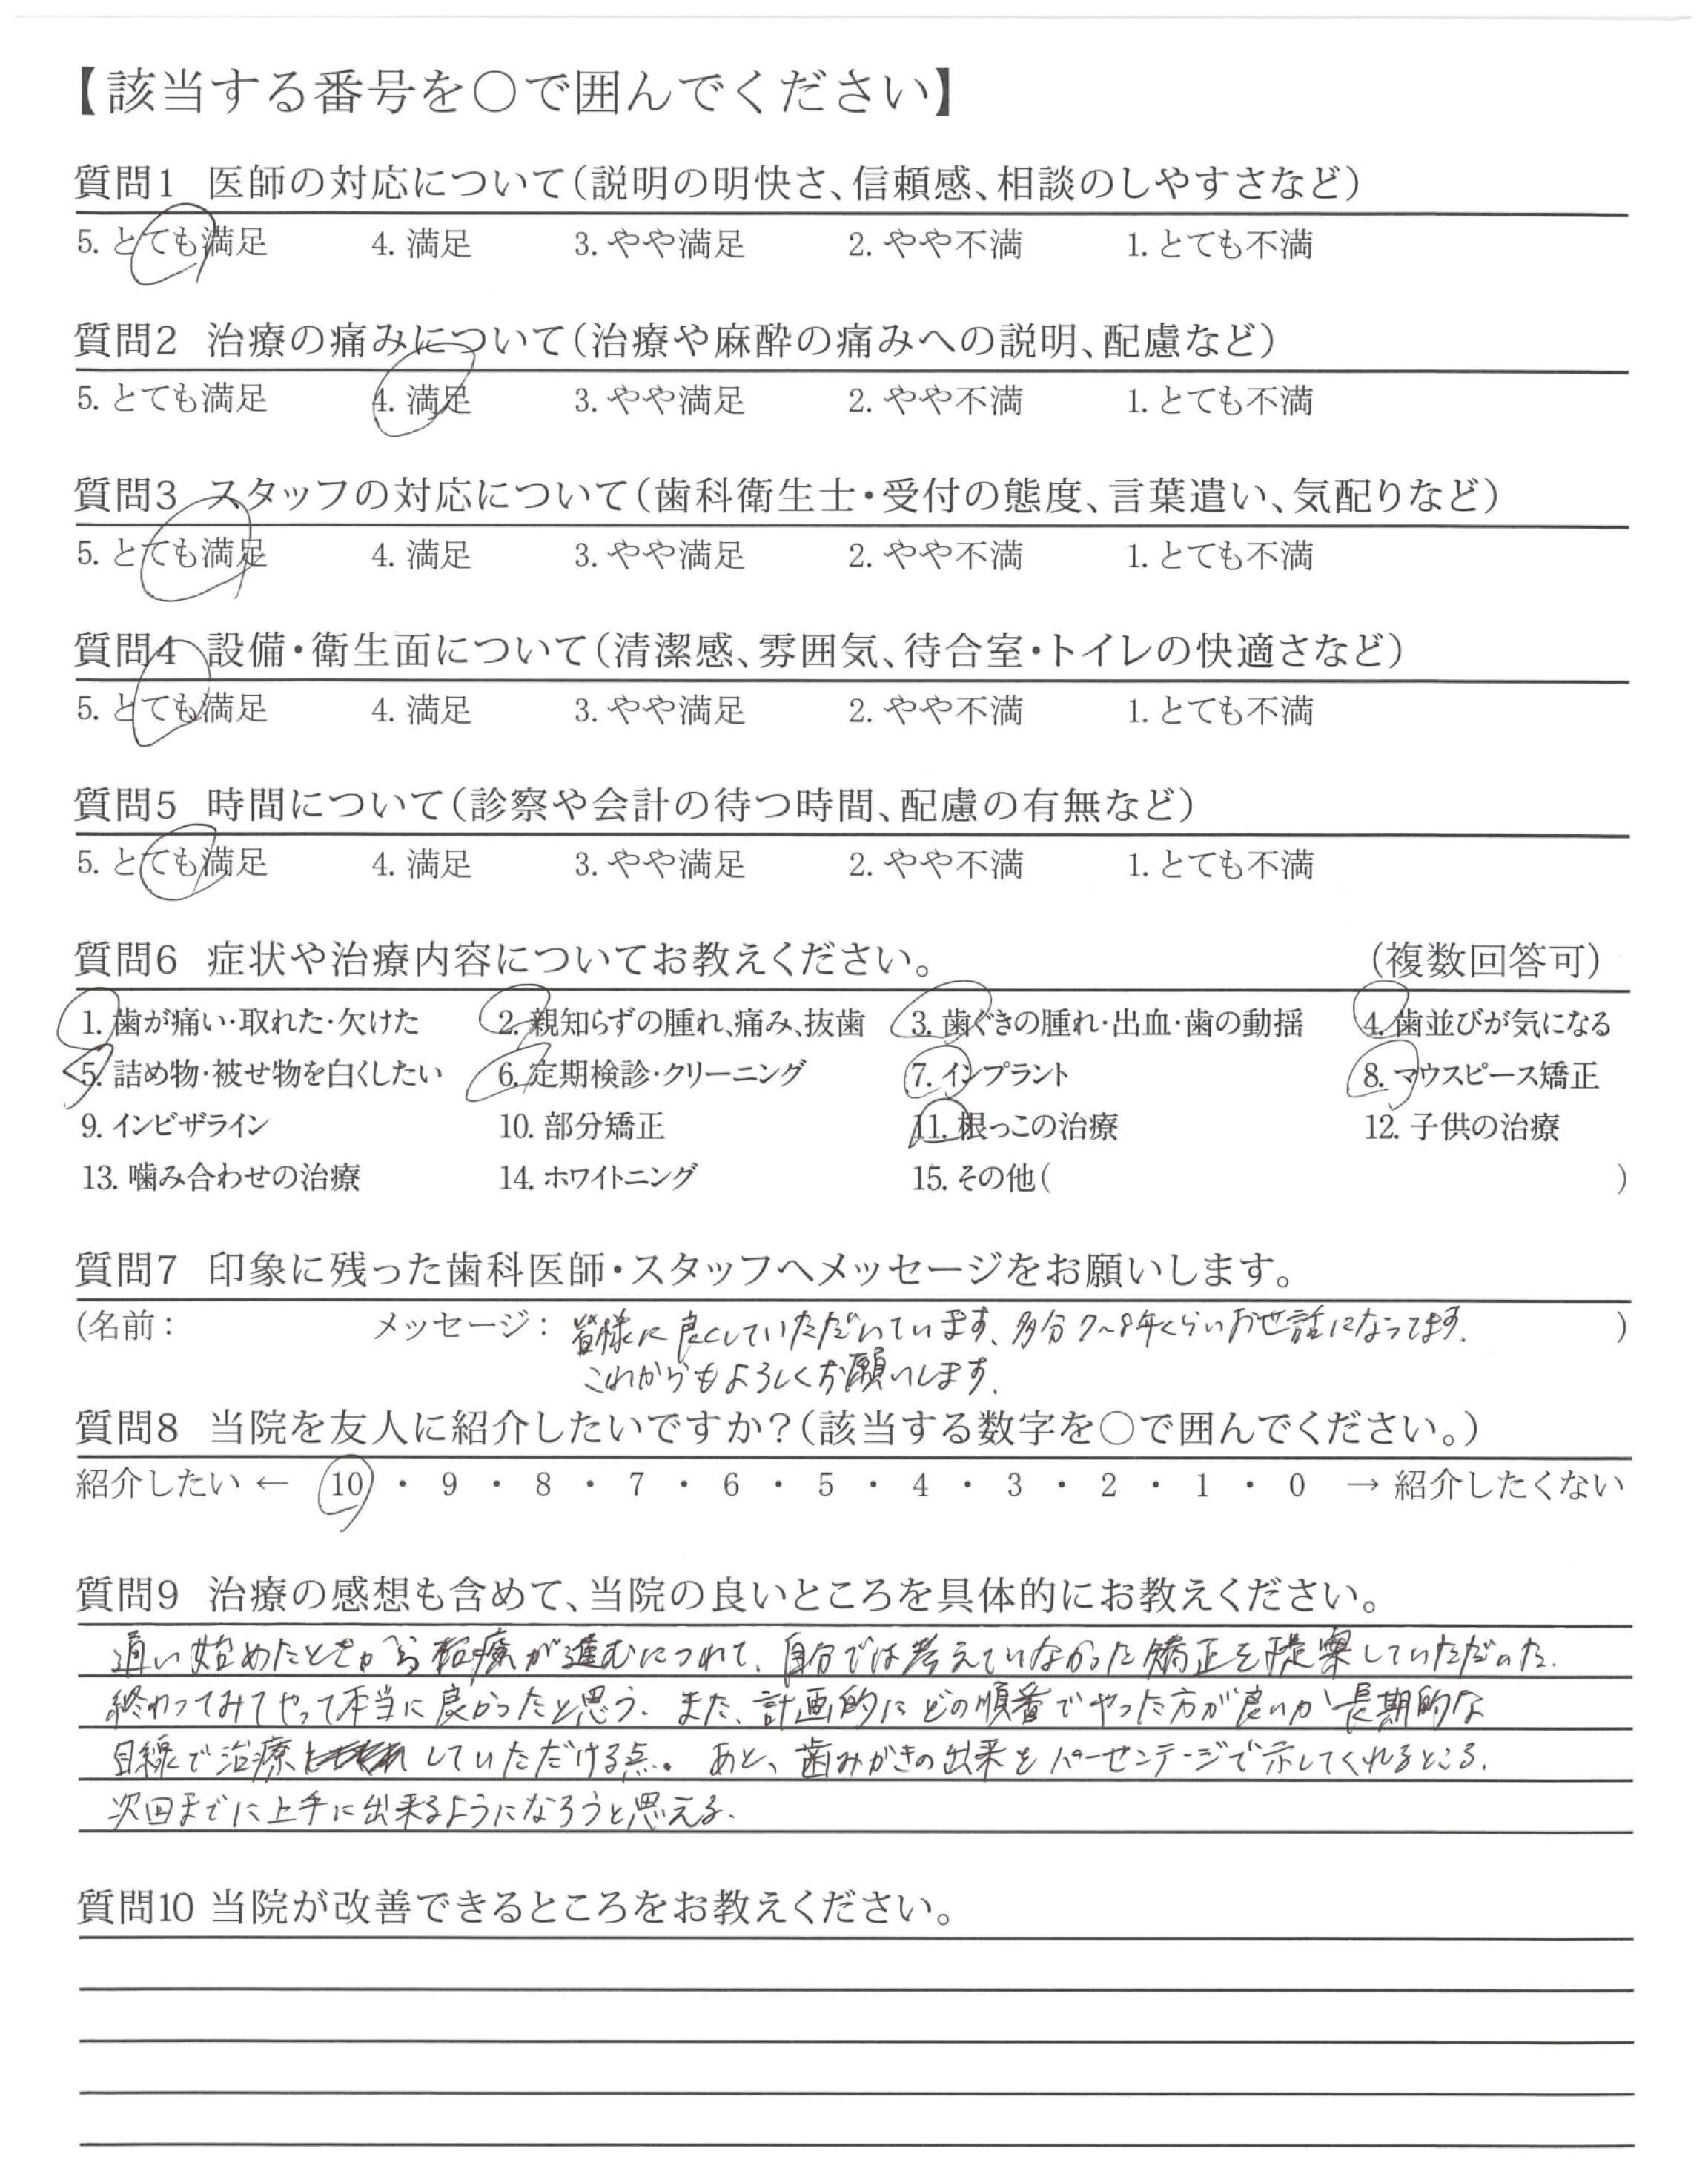 【該当する番号を○で囲んでください】
質問1 医師の対応について（説明の明快さ、信頼感、相談のしやすさなど）
5. とても満足 4. 満足 3. やや満足 2. やや不満 1. とても不満
質問2 治療の痛みについて（治療や麻酔の痛みへの説明、配慮など）
5. とても満足 4. 満足 3. やや満足 2. やや不満 1. とても不満
質問3 スタッフの対応について（歯科衛生士・受付の態度、言葉遣い、気配りなど）
5. とても満足 4. 満足 3. やや満足 2. やや不満 1. とても不満
質問4 設備・衛生面について（清潔感、雰囲気、待合室・トイレの快適さなど）
5. とても満足 4. 満足 3. やや満足 2. やや不満 1. とても不満
質問5 時間について（診察や会計の待つ時間、配慮の有無など）
5. とても満足 4. 満足 3. やや満足 2. やや不満 1. とても不満
質問6 症状や治療内容についてお教えください。 （複数回答可）
1. 歯が痛い・取れた・欠けた 2. 親知らずの腫れ、痛み、抜歯 3. 歯ぐきの腫れ・出血・歯の動揺 4. 歯並びが気になる
5. 詰め物・被せ物を白くしたい 6. 定期検診・クリーニング 7. インプラント 8. マウスピース矯正
9. インビザライン 10. 部分矯正 11. 根っこの治療 12. 子供の治療
13. 噛み合わせの治療 14. ホワイトニング 15. その他（ ）
質問7 印象に残った歯科医師・スタッフへメッセージをお願いします。
（名前： メッセージ：皆様に良くしていただいています、多分7〜8年くらいお世話になってます. ）
これからもよろしくお願いします.
質問8 当院を友人に紹介したいですか？（該当する数字を○で囲んでください。）
紹介したい ← 10 ・ 9 ・ 8 ・ 7 ・ 6 ・ 5 ・ 4 ・ 3 ・ 2 ・ 1 ・ 0 → 紹介したくない
質問9 治療の感想も含めて、当院の良いところを具体的にお教えください。
通い始めたときから治療が進むにつれて、自分では考えていなかった矯正を提案していただいた.
終わってみてやって本当に良かったと思う. また、計画的にどの順番でやった方が良いか 長期的な
目線で治療していただける点。 あと、歯みがきの出来をパーセンテージで示してくれるところ.
次回までに上手に出来るようになろうと思える.
質問10 当院が改善できるところをお教えください。